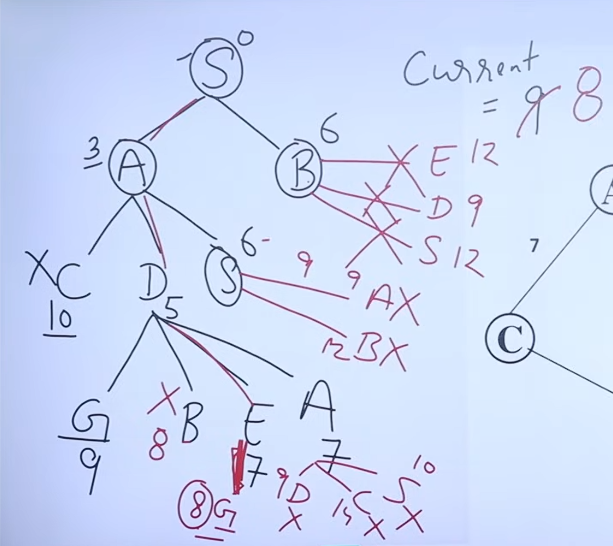 S 0
Current
= 9 8
3 A
B 6
X E 12
D 9
S 12
X C
10
D
5
S 6
9
9 A X
12 B X
7
C
G
9
X
8 B
E
7
A
7
8 G
9 D
X
15 C
X
S 10
X